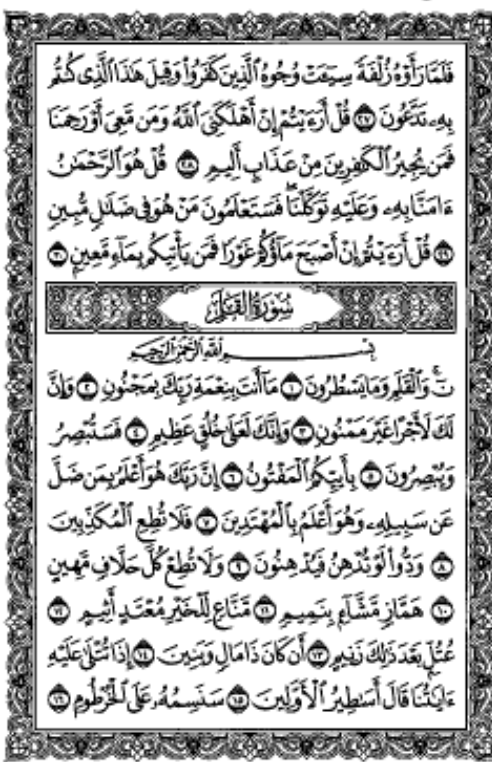 فَلَمَّا رَأَوْهُ زُلْفَةً سِيٓـَٔتْ وُجُوهُ ٱلَّذِينَ كَفَرُوا۟ وَقِيلَ هَٰذَا ٱلَّذِى كُنتُم
بِهِۦ تَدَّعُونَ ٢٧ قُلْ أَرَءَيْتُمْ إِنْ أَهْلَكَنِىَ ٱللَّهُ وَمَن مَّعِىَ أَوْ رَحِمَنَا
فَمَن يُجِيرُ ٱلْكَٰفِرِينَ مِنْ عَذَابٍ أَلِيمٍ ٢٨ قُلْ هُوَ ٱلرَّحْمَٰنُ
ءَامَنَّا بِهِۦ وَعَلَيْهِ تَوَكَّلْنَا ۖ فَسَتَعْلَمُونَ مَنْ هُوَ فِى ضَلَٰلٍ مُّبِينٍ
٢٩ قُلْ أَرَءَيْتُمْ إِنْ أَصْبَحَ مَآؤُكُمْ غَوْرًا فَمَن يَأْتِيكُم بِمَآءٍ مَّعِينٍۭ ٣٠
سُورَةُ القَلَمِ
بِسْمِ ٱللَّهِ ٱلرَّحْمَٰنِ ٱلرَّحِيمِ
نٓ ۚ وَٱلْقَلَمِ وَمَا يَسْطُرُونَ ١ مَآ أَنتَ بِنِعْمَةِ رَبِّكَ بِمَجْنُونٍ ٢ وَإِنَّ
لَكَ لَأَجْرًا غَيْرَ مَمْنُونٍ ٣ وَإِنَّكَ لَعَلَىٰ خُلُقٍ عَظِيمٍ ٤ فَسَتُبْصِرُ
وَيُبْصِرُونَ ٥ بِأَييِّكُمُ ٱلْمَفْتُونُ ٦ إِنَّ رَبَّكَ هُوَ أَعْلَمُ بِمَن ضَلَّ
عَن سَبِيلِهِۦ وَهُوَ أَعْلَمُ بِٱلْمُهْتَدِينَ ٧ فَلَا تُطِعِ ٱلْمُكَذِّبِينَ
٨ وَدُّوا۟ لَوْ تُدْهِنُ فَيُدْهِنُونَ ٩ وَلَا تُطِعْ كُلَّ حَلَّافٍ مَّهِينٍ
١٠ هَمَّازٍ مَّشَّآءٍۭ بِنَمِيمٍ ١١ مَّنَّاعٍ لِّلْخَيْرِ مُعْتَدٍ أَثِيمٍ ١٢
عُتُلٍّۭ بَعْدَ ذَٰلِكَ زَنِيمٍ ١٣ أَن كَانَ ذَا مَالٍ وَبَنِينَ ١٤ إِذَا تُتْلَىٰ عَلَيْهِ
ءَايَٰتُنَا قَالَ أَسَٰطِيرُ ٱلْأَوَّلِينَ ١٥ سَنَسِمُهُۥ عَلَى ٱلْخُرْطُومِ ١٦